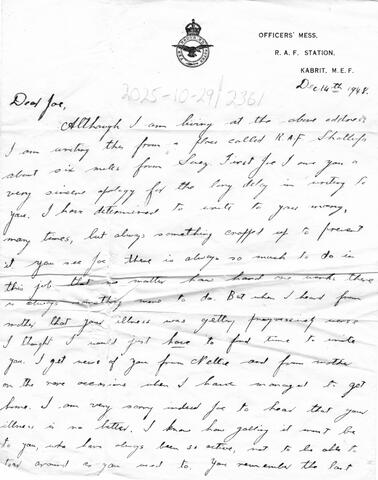 OFFICERS' MESS,
R. A. F. STATION,
KABRIT, M. E. F.
Dec 14th 1948.
2025-10-29/2361
Dear Joe,
Although I am living at the above address
I am writing this from a place called R.A.F. Shallufa
about six miles from Suez. First Joe I owe you a
very sincere apology for the long delay in writing to
you. I have determined to write to you
many times, but always something cropped up to prevent
it you see Joe there is always so much to do in
this job that no matter how hard one works there
is always something more to do. But when I heard from
mother that your illness was getting progressively worse
I thought I would just have to find time to write
you. I get news of you from Nellie and from mother
on the rare occasions when I have managed to get
home. I am very sorry indeed Joe to hear that your
illness is no better. I know how galling it must be
to you, who have always been so active, not to be able to
around as you used to. You remember the last